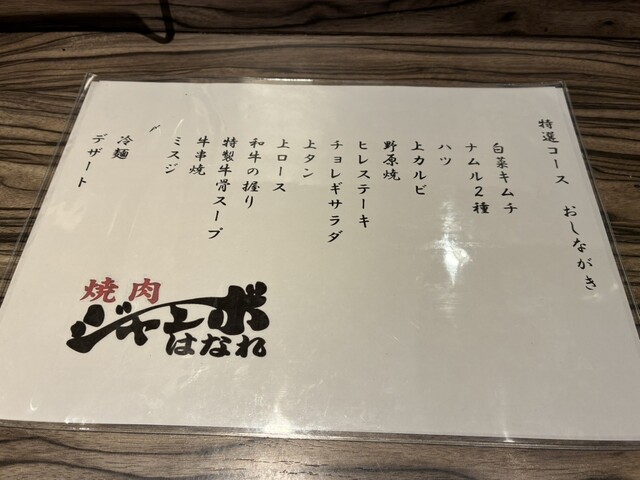 特選コース　おしながき
白菜キムチ
ナムル２種
ハツ
上カルビ
野原焼
ヒレステーキ
チョレギサラダ
上タン
上ロース
和牛の握り
特製牛骨スープ
牛串焼
ミスジ
〃
冷麺
デザート
焼肉
ジャンボ
はなれ